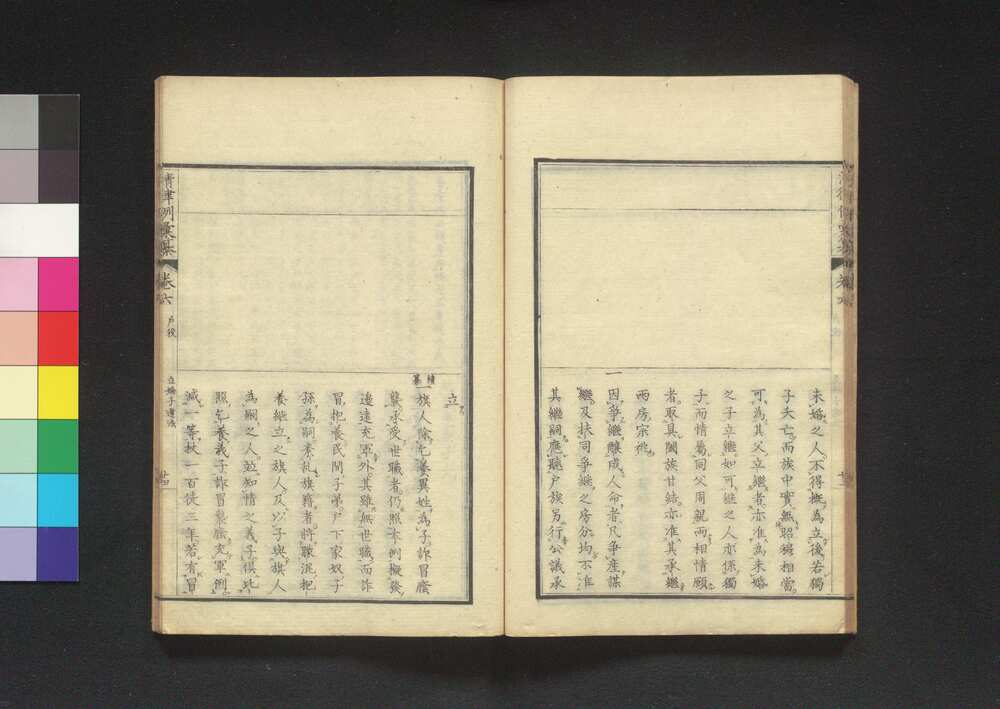 未婚之人不得概為立後若獨
子夭亡而族中實無昭穆相當
可為其父立繼者亦准為未婚
之子立繼如可繼之人亦係獨
子而情屬同父周親兩相情願
者取具闔族甘結亦准其承繼
兩房宗祧
一
因爭繼釀成人命者凡爭產謀
繼及扶同爭繼之房分均不准
其繼嗣應聽戶族另行公議承
立
續纂
一旗人除乞養異姓為子詐冒廕
襲承受世職者仍照本例擬發
邊遠充軍外其雖無世職而詐
冒抱養民間子弟戶下家奴子
孫為嗣紊乱旗籍者將職混抱
養継立之旗人及以子與旗人
為嗣之人並知情之義子俱比
照乞養義子詐冒襲廕充軍例
減一等杖一百徒三年若有冒
清律例彙纂
卷六
戶役
立嫡子違法